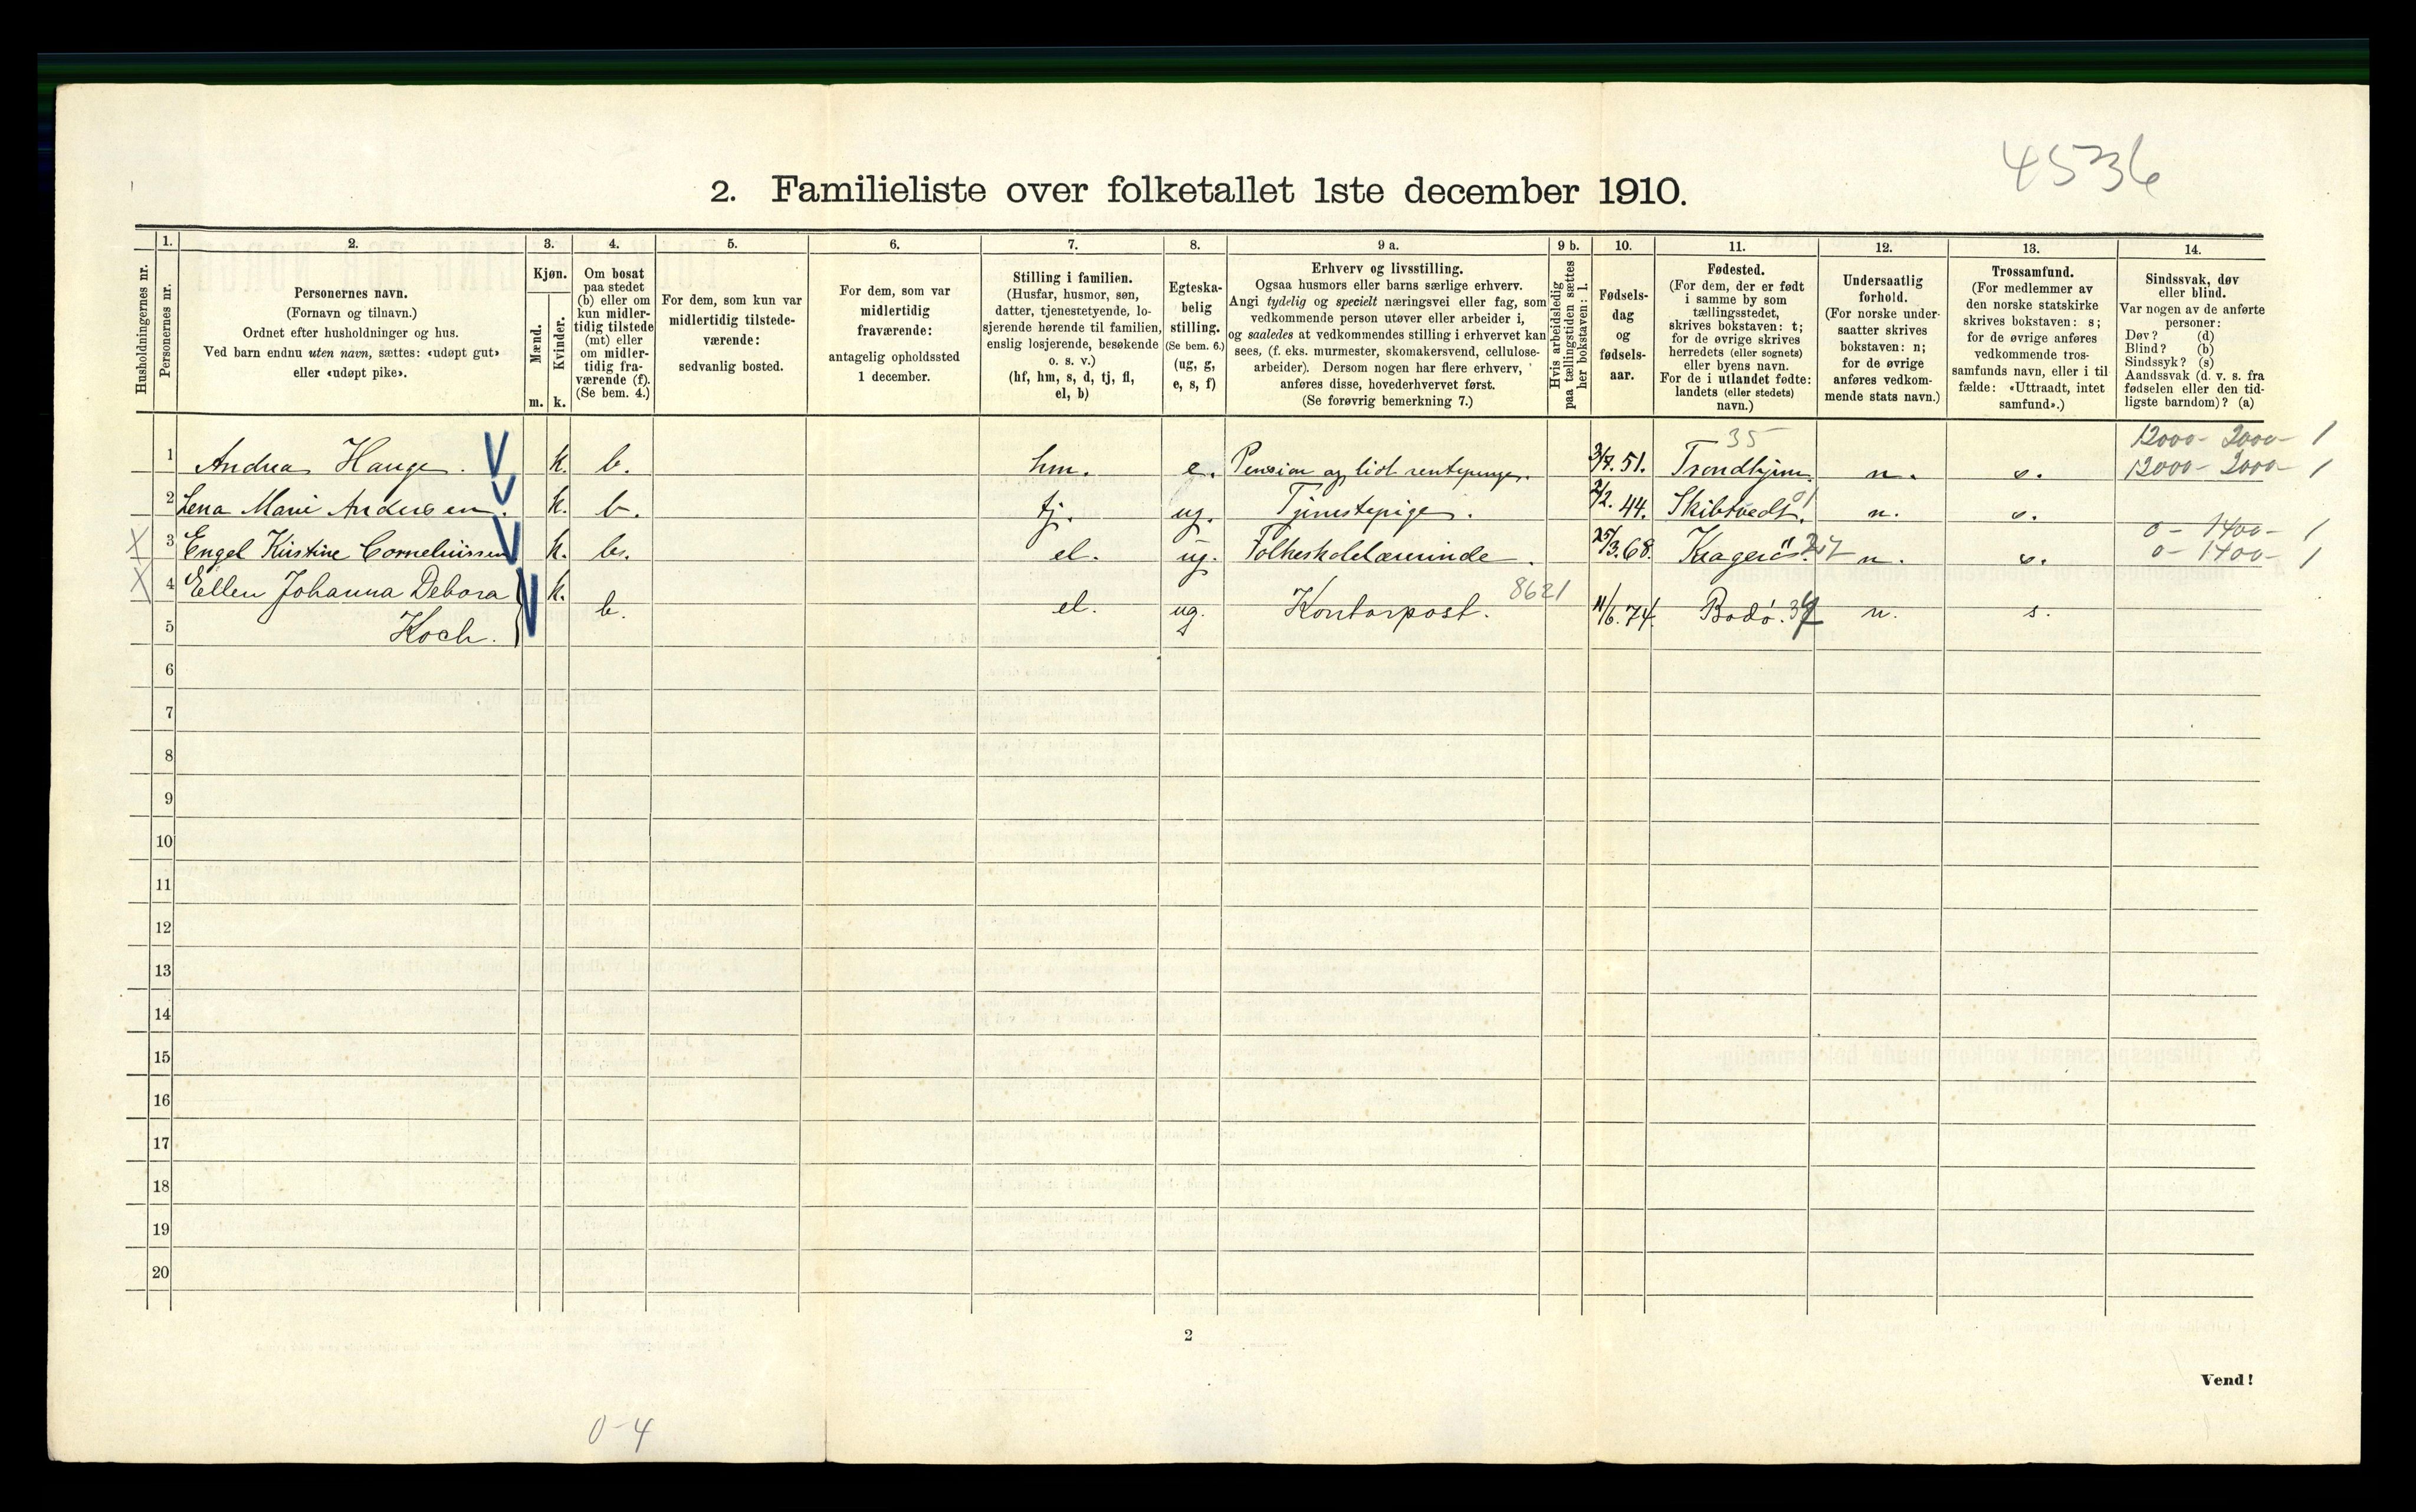 4536
2. Familieliste over folketallet 1ste december 1910.
Husholdningernes nr.
1.
Personernes nr.
2.
Personernes navn.
(Fornavn og tilnavn.)
Ordnet efter husholdninger og hus.
Ved barn endnu uten navn, sættes: «udøpt gut»
eller «udøpt pike».
3.
Kjøn.
Mænd.
Kvinder.
m. k.
4.
Om bosat
paa stedet
(b) eller om
kun midler-
tidig tilstede
(mt) eller
om midler-
tidig fra-
værende (f).
(Se bem. 4.)
5.
For dem, som kun var
midlertidig tilstede-
værende:
sedvanlig bosted.
6.
For dem, som var
midlertidig
fraværende:
antagelig opholdssted
1 december.
7.
Stilling i familien.
(Husfar, husmor, søn,
datter, tjenestetyende, lo-
sjerende hørende til familien,
enslig losjerende, besøkende
o. s. v.)
(hf, hm, s, d, tj, fl,
el, b)
8.
Egteska-
belig
stilling.
(Se bem. 6.)
(ug, g,
e, s, f)
9 a.
Erhverv og livsstilling.
Ogsaa husmors eller barns særlige erhverv.
Angi tydelig og specielt næringsvei eller fag, som
vedkommende person utøver eller arbeider i,
og saaledes at vedkommendes stilling i erhvervet kan
sees, (f. eks. murmester, skomakersvend, cellulose-
arbeider). Dersom nogen har flere erhverv,
anføres disse, hovederhvervet først.
(Se forøvrig bemerkning 7.)
9 b.
Hvis arbeidsledig
paa tællingstiden sættes
her bokstaven: l.
10.
Fødsels-
dag
og
fødsels-
aar.
11.
Fødested.
(For dem, der er født
i samme by som
tællingsstedet,
skrives bokstaven: t;
for de øvrige skrives
herredets (eller sognets)
eller byens navn.
For de i utlandet fødte:
landets (eller stedets)
navn.)
12.
Undersaatlig
forhold.
(For norske under-
saatter skrives
bokstaven: n;
for de øvrige
anføres vedkom-
mende stats navn.)
13.
Trossamfund.
(For medlemmer av
den norske statskirke
skrives bokstaven: s;
for de øvrige anføres
vedkommende tros-
samfunds navn, eller i til
fælde: «Uttraadt, intet
samfund».)
14.
Sindssvak, døv
eller blind.
Var nogen av de anførte
personer:
Døv? (d)
Blind? (b)
Sindssyk? (s)
Aandssvak (d. v. s. fra
fødselen eller den tid-
ligste barndom)? (a)
35 12000- 2000- 1
1 Andrea Hauge. V k. b. hm. e. Pension og lidt rentepenge. 3/7. 51. Trondhjem. n. s. 12000- 2000- 1
2 Lena Marie Andersen. V k. b. tj. ug. Tjenestepige. 2/2. 44. Skibtvedt. 01 n. s.
0- 1400- 1
X 3 Engel Kirstine Corneliussen V k. b. el. ug. Folkeskolelærerinde. 25/3.68. Kragerö. 257 n. s. 0- 1400- 1
X 4 Ellen Johanna Debora V k. b. el. ug. Kontorpost. 8621 11/6.74. Bodö. 37 n. s.
5 Koch.
6
7
8
9
10
11
12
13
14
15
16
17
18
19
20
2
Vend!
0-4